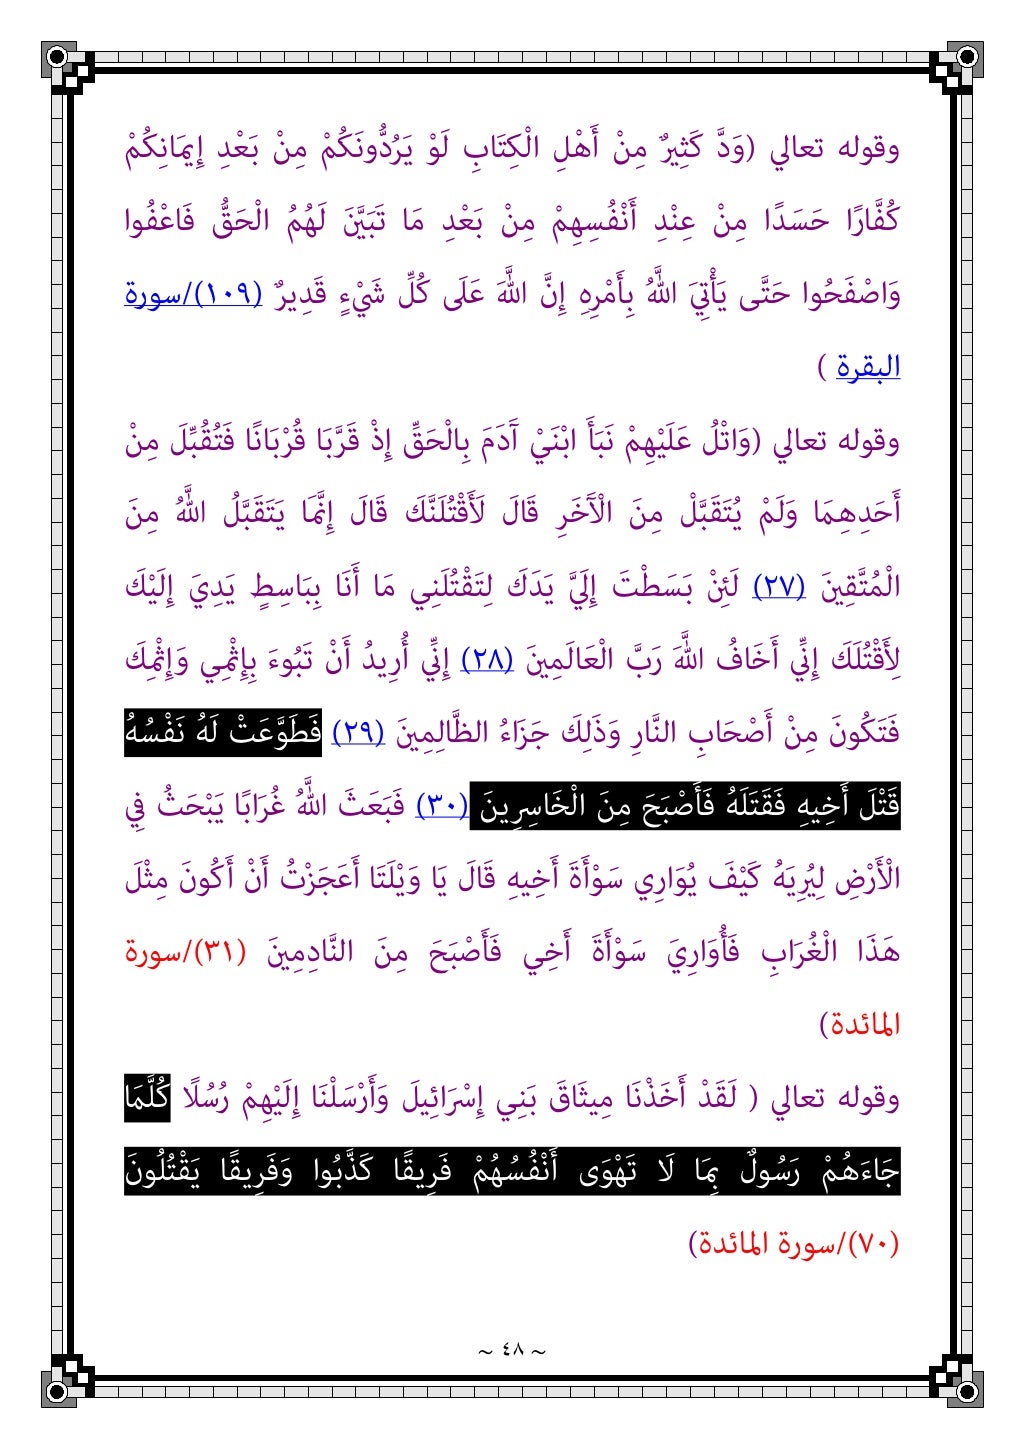 وقوله تعالي (وَدَّ كَثِيرٌ مِنْ أَهْلِ الْكِتَابِ لَوْ يَرُدُّونَكُمْ مِنْ بَعْدِ إِيمَانِكُمْ
كُفَّارًا حَسَدًا مِنْ عِنْدِ أَنْفُسِهِمْ مِنْ بَعْدِ مَا تَبَيَّنَ لَهُمُ الْحَقُّ فَاعْفُوا
وَاصْفَحُوا حَتَّى يَأْتِيَ اللَّهُ بِأَمْرِهِ إِنَّ اللَّهَ عَلَى كُلِّ شَيْءٍ قَدِيرٌ (١٠٩)/سورة
البقرة )
وقوله تعالي (وَاتْلُ عَلَيْهِمْ نَبَأَ ابْنَيْ آَدَمَ بِالْحَقِّ إِذْ قَرَّبَا قُرْبَانًا فَتُقُبِّلَ مِنْ
أَحَدِهِمَا وَلَمْ يُتَقَبَّلْ مِنَ الْآَخَرِ قَالَ لَأَقْتُلَنَّكَ قَالَ إِنَّمَا يَتَقَبَّلُ اللَّهُ مِنَ
الْمُتَّقِينَ (٢٧) لَئِنْ بَسَطْتَ إِلَيَّ يَدَكَ لِتَقْتُلَنِي مَا أَنَا بِبَاسِطٍ يَدِيَ إِلَيْكَ
لِأَقْتُلَكَ إِنِّي أَخَافُ اللَّهَ رَبَّ الْعَالَمِينَ (٢٨) إِنِّي أُرِيدُ أَنْ تَبُوءَ بِإِثْمِي وَإِثْمِكَ
فَتَكُونَ مِنْ أَصْحَابِ النَّارِ وَذَلِكَ جَزَاءُ الظَّالِمِينَ (٢٩) فَطَوَّعَتْ لَهُ نَفْسُهُ
قَتْلَ أَخِيهِ فَقَتَلَهُ فَأَصْبَحَ مِنَ الْخَاسِرِينَ (٣٠) فَبَعَثَ اللَّهُ غُرَابًا يَبْحَثُ فِي
الْأَرْضِ لِيُرِيَهُ كَيْفَ يُوَارِي سَوْأَةَ أَخِيهِ قَالَ يَا وَيْلَتَا أَعَجَزْتُ أَنْ أَكُونَ مِثْلَ
هَذَا الْغُرَابِ فَأُوَارِيَ سَوْأَةَ أَخِي فَأَصْبَحَ مِنَ النَّادِمِينَ (٣١)/سورة
المائدة)
وقوله تعالي ( لَقَدْ أَخَذْنَا مِيثَاقَ بَنِي إِسْرَائِيلَ وَأَرْسَلْنَا إِلَيْهِمْ رُسُلًا كُلَّمَا
جَاءَهُمْ رَسُولٌ بِمَا لَا تَهْوَى أَنْفُسُهُمْ فَرِيقًا كَذَّبُوا وَفَرِيقًا يَقْتُلُونَ
(٧٠)/سورة المائدة)
~ ٤٨ ~